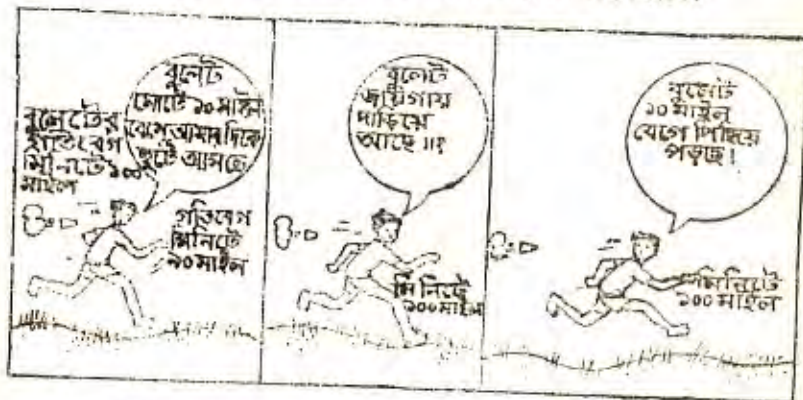 বুলেটের
গতিবেগ
মিনিটে ১০০
মাইল
বুলেট
মোটে ১০ মাইল
বেগে আমার দিকে
ছুটে আসছে
গতিবেগ
মিনিটে
৯০ মাইল
বুলেট
জায়গায়
দাঁড়িয়ে
আছে !!!
মিনিটে
১০০ মাইল
বুলেট
১০ মাইল
বেগে পিছিয়ে
পড়ছে !
মিনিটে
১০০ মাইল